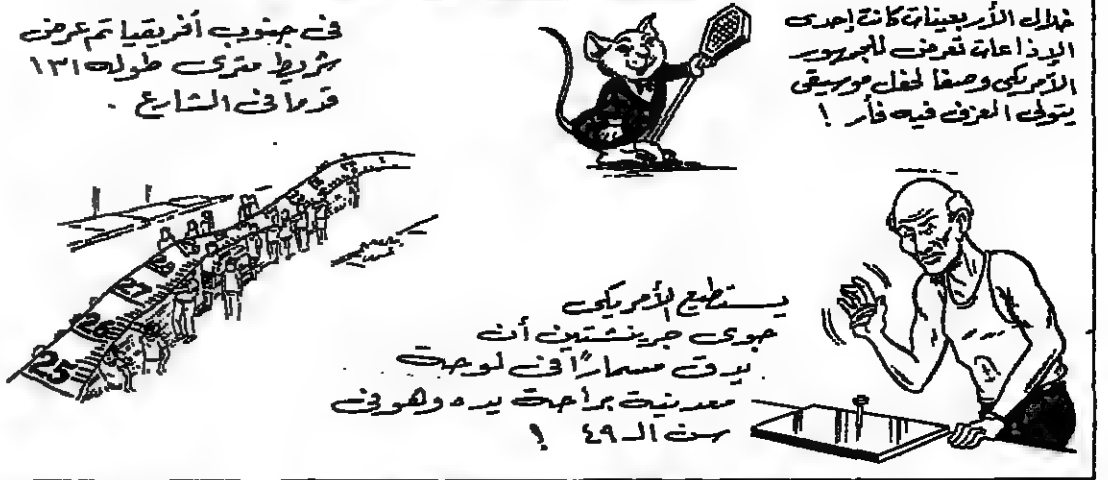 خلال الأربعينات كانت إحدى
الإذاعات تعرض للجمهور
الأمريكى وصفا لحفل موسيقى
يتولى العزف فيه فأر !
فى جنوب أفريقيا تم عرض
شريط مترى طوله ١٣١
قدما فى الشارع .
25
26
27
يستطيع الأمريكى
جوى جرينشتين أن
يدق مسمارًا فى لوحة
معدنية براحة يده وهو فى
سن الـ ٤٩ !